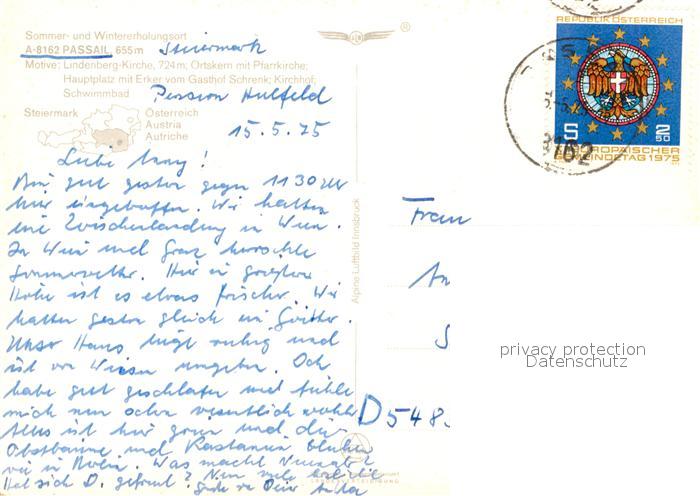 Sommer- und Wintererholungsort
A-8162 PASSAIL, 655m Steiermark
Motive: Lindenberg-Kirche, 724m; Ortskern mit Pfarrkirche;
Hauptplatz mit Erker vom Gasthof Schrenk; Kirchhof;
Schwimmbad Pension
Steiermark Österreich
Austria
Autriche
15.5.75
Liebe !
Bin gut gestern gegen 11 30 Uhr
hier eingetroffen. Wir hatten
eine Zwischenlandung in Wien.
In Wien und Graz herrschte
Sommerwetter. Hier in
Höhe ist es etwas frischer. Wir
hatten gestern gleich ein Gewitter.
Unser Haus liegt ruhig und
ist von Wiesen umgeben. Ich
habe gut geschlafen und fühle
mich nun schon wesentlich wohler
Alles ist hier grün und die
Obstbäume und Kastanien blühen
wie in Köln. Was macht
Hat sich D. gefreut? Nun viele
Alpine Luftbild Innsbruck
REPUBLIK ÖSTERREICH
S 2 50
EUROPÄISCHER
GEMEINDETAG 1975
8162
Frau
An
S
D 548
privacy protection
Datenschutz